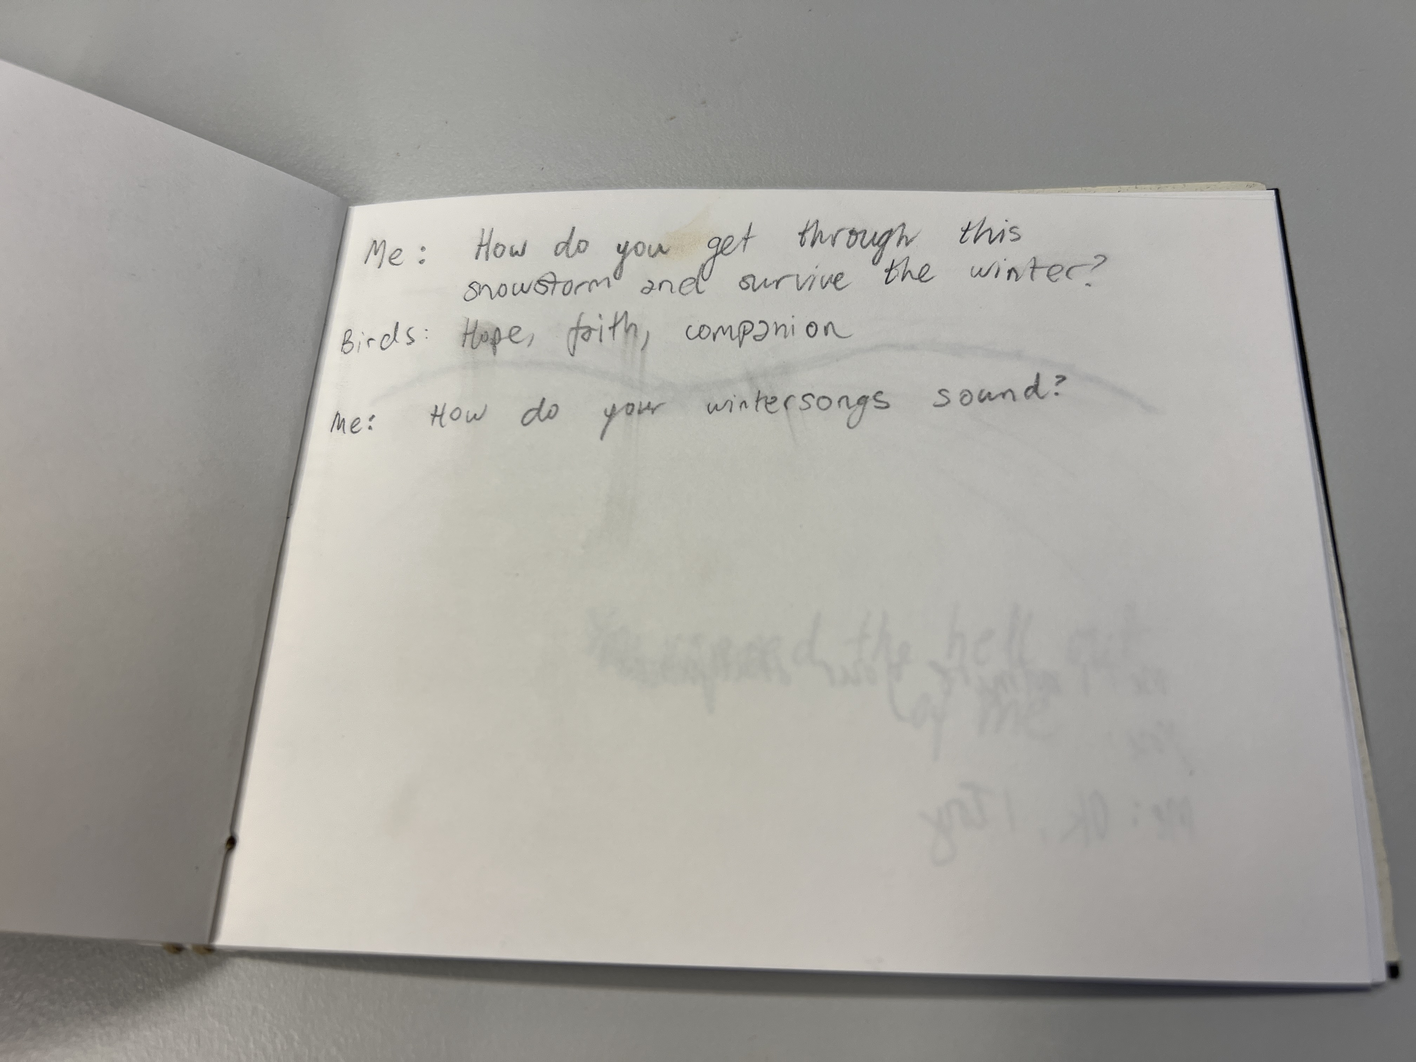 Me: How do you get through this
snowstorm and survive the winter?
Birds: Hope, faith, companion
Me: How do your wintersongs sound?
Me: Ok, I Try